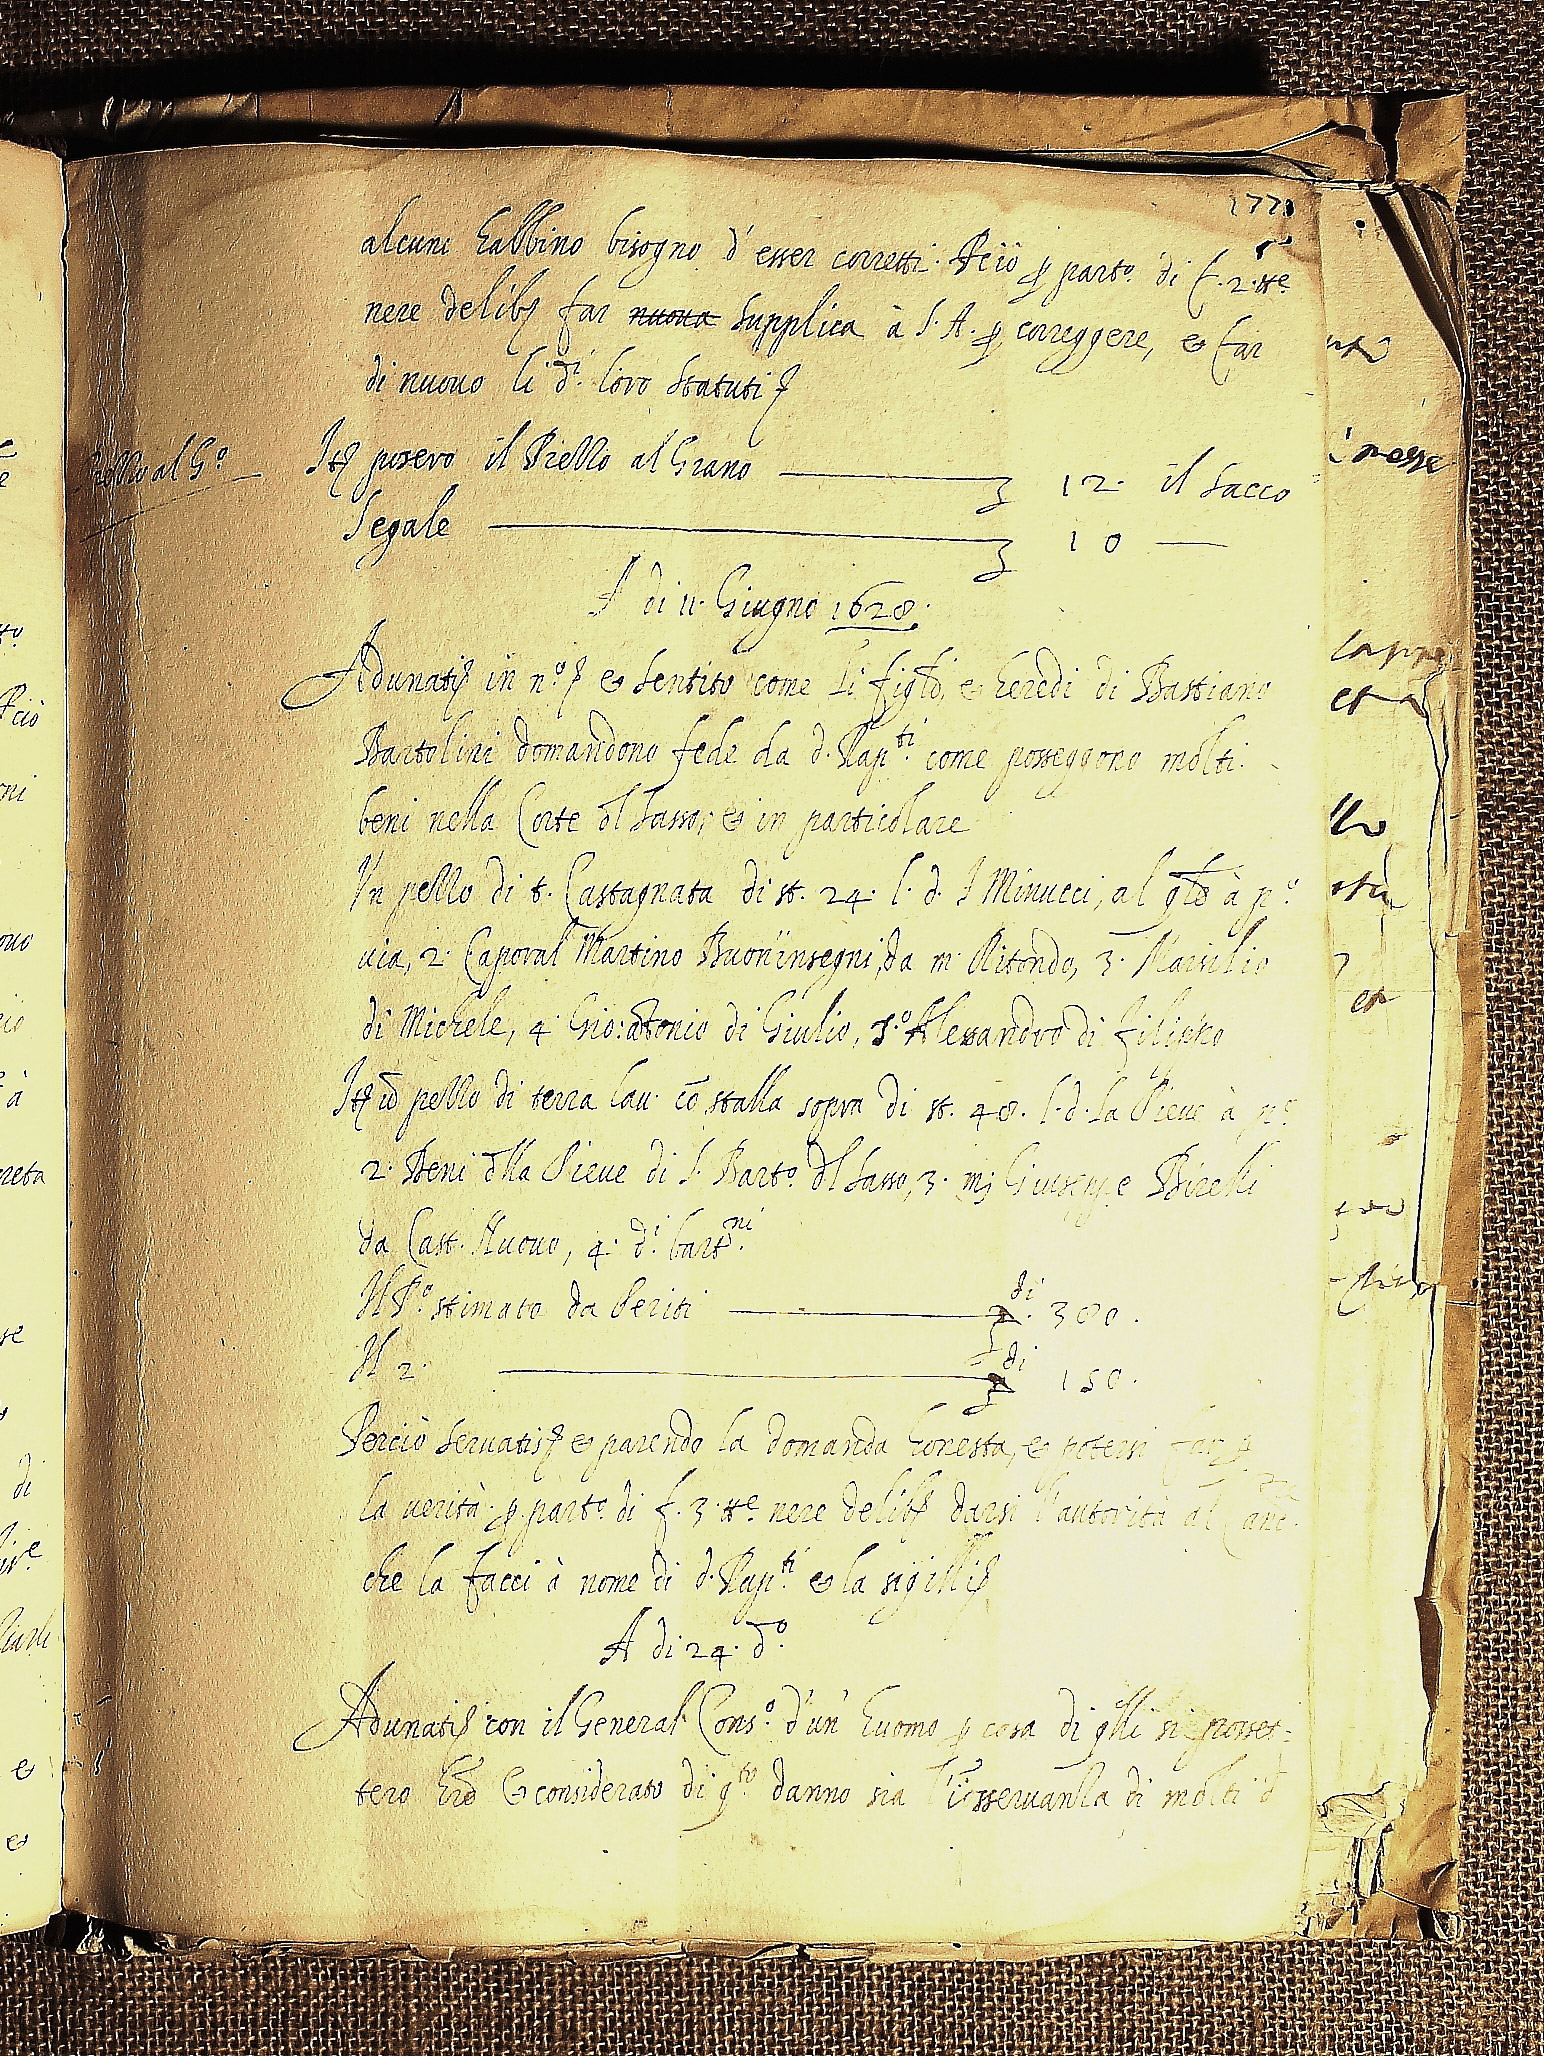 177
alcuni habbino bisogno d'esser corretti. Perciò p parto. di f. 2. tte
nere delib far nuova supplica à S. A. p correggere, e far
di nuovo li di. loro statuti
Prezzo al Go.
It posero il Prezzo al Grano 12. il sacco
Segale 10
A di 11. Giugno 1628.
Adunati in no. e sentito come li figli, e heredi di Bastiano
Bartolini domandono fede da d. Rapti. come posseggono molti
beni nella Corte dl Sasso, e in particolare
Un pezzo di t. Castagnata di st. 24. l. d. I Minucci, al qle à po.
via, 2. Caporal Martino Buoninsegni da m. Ritondo, 3. Marsilio
di Michele, 4. Gio: Antonio di Giulio, 5o. Alessandro di Filippo
It ū pezzo di terra lav. cō stalla sopra di st. 48. l. d. la Pieve à po.
2. Beni dlla Pieve di S. Barto. dl Sasso, 3. mj Giuseppe Birelli
da Cast. Nuovo, 4. di. Bartni.
Il Po. stimato da Periti di 300.
Il 2. di 150.
Perciò servatis e parendo la domanda honesta, e potersi far p
la verità. p parto. di f. 3. tte nere delib darsi l'autorità al Canc.re
che la facci à nome di d. Rapti. e la sigilli
A di 24. do
Adunati con il General Conso. d'un' huomo p casa di qlli si posset-
tero e considerato di qto. danno sia l'isservanza di molti